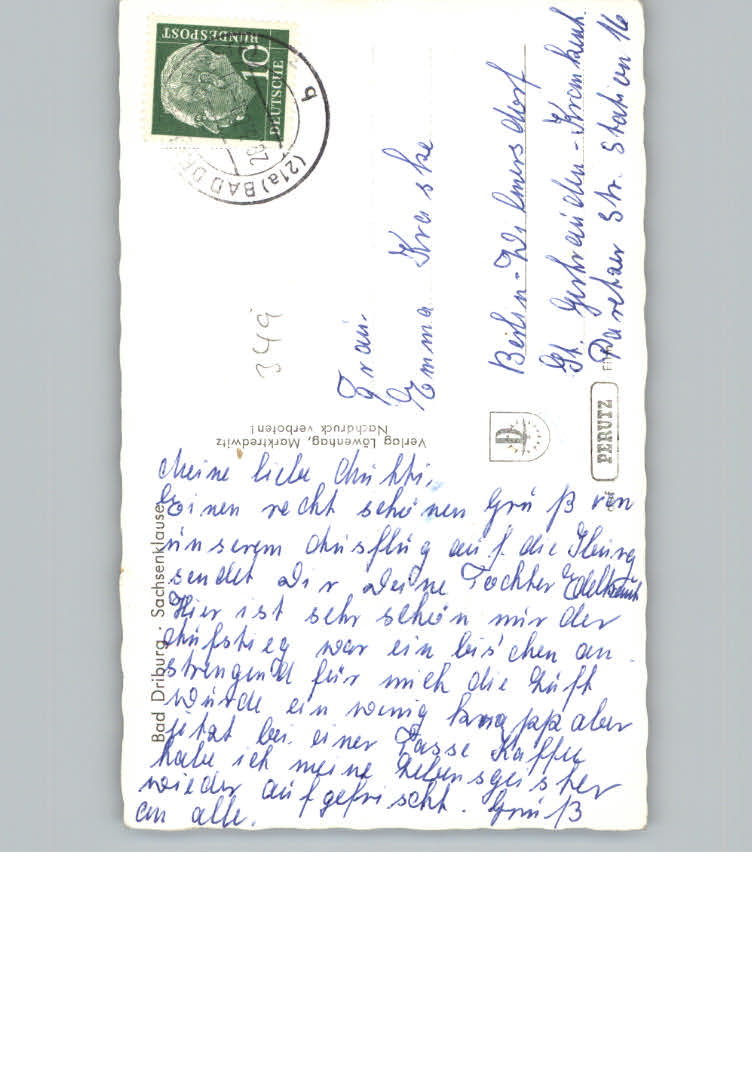 Meine liebe Mutti,
Einen recht schönen Gruß von
unserem Ausflug auf die Iburg
sendet Dir Deine Tochter Edeltraut
Hier ist sehr schön nur der
Aufstieg war ein bis'chen an
strengend für mich die Luft
wurde ein wenig knapp aber
jetzt bei einer Tasse Kaffee
habe ich meine Lebensgeister
wieder aufgefrischt. Gruß
an alle.
Frau
Emma Kraske
Berlin-Wilmersdorf
St. Gertrauden-Krankenh.
Paretzer Str. Station 16
349
DEUTSCHE
BUNDESPOST
10
(21a) BAD DR
b
Bad Driburg · Sachsenklause
Verlag Löwenhag, Marktredwitz
Nachdruck verboten!
auf
PERUTZ